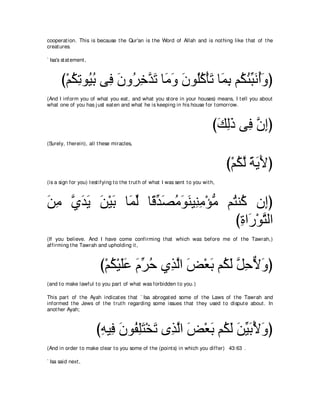 cooperation. This is because the Qur'an is the Word of Allah and is nothing like that of the
creatures.
`Isa's statement,
(وَأُنَبِّئُكُم بِمَا تَأْكُلُونَ وَمَا تَدَّخِرُونَ فِى بُيُوتِكُمْ)
(And I inform you of what you eat, and what you store in your houses) means, I tell you about
what one of you has just eaten and what he is keeping in his house for tomorrow.
(إِنَّ فِى ذَلِكَ)
(Surely, therein), all these miracles,
(لأَيَةً لَّكُمْ)
(is a sign for you) testifying to the truth of what I was sent to you with,
(إِن كُنتُم مُّؤْمِنِينَوَمُصَدِّقًا لِّمَا بَيْنَ يَدَيَّ مِنَ
التَّوْرَاةِ)
(If you believe. And I have come confirming that which was before me of the Tawrah,)
affirming the Tawrah and upholding it,
(وَلأُحِلَّ لَكُم بَعْضَ الَّذِي حُرِّمَ عَلَيْكُمْ)
(and to make lawful to you part of what was forbidden to you.)
This part of the Ayah indicates that `Isa abrogated some of the Laws of the Tawrah and
informed the Jews of the truth regarding some issues that they used to dispute about. In
another Ayah;
(وَلأُبَيِّنَ لَكُم بَعْضَ الَّذِى تَخْتَلِفُونَ فِيهِ)
(And in order to make clear to you some of the (points) in which you differ) 43:63 .
`Isa said next,